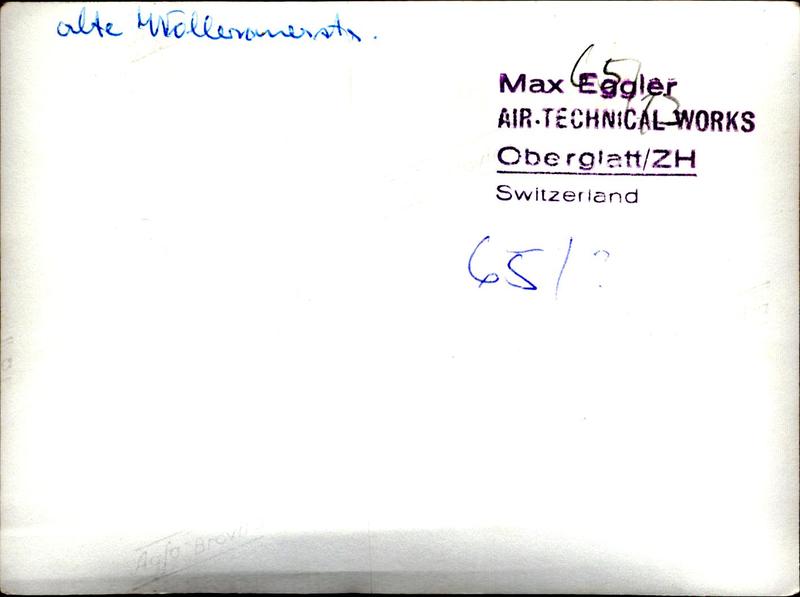 alte Wollerauerstr.
65/13
Max Eggler
AIR-TECHNICAL-WORKS
Oberglatt/ZH
Switzerland
65/?
Agfa-Brovi